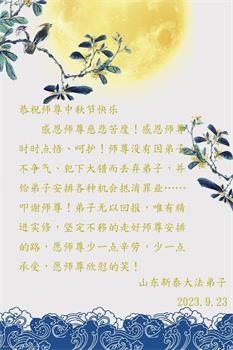 恭祝师尊中秋节快乐
感恩师尊慈悲苦度！感恩师尊
时时点悟、呵护！师尊没有因弟子
不争气、犯下大错而丢弃弟子，并
给弟子安排各种机会抵消罪业……
叩谢师尊！弟子无以回报，唯有精
进实修，坚定不移的走好师尊安排
的路，愿师尊少一点辛劳，少一点
承受，愿师尊欣慰的笑！
山东新泰大法弟子
2023.9.23